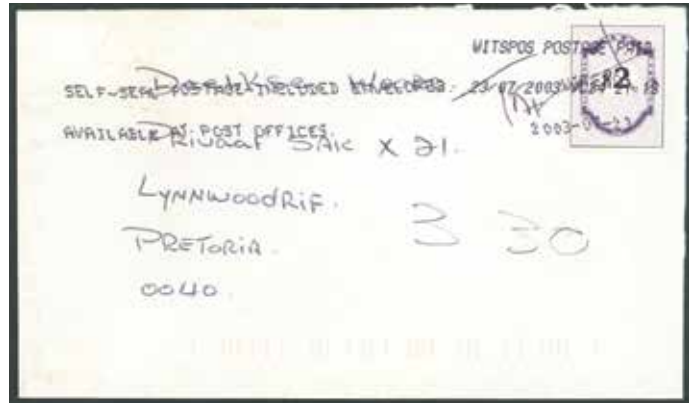 WITSPOS POSTAGE PAID
SELF-SEAL POSTAGE INCLUDED ENVELOPES. 23/07/2003
AVAILABLE AT POST OFFICES.
2003-07-23
Privaat SAK X 21.
LYNNWOODRIF.
PRETORIA.
0040.
3 30